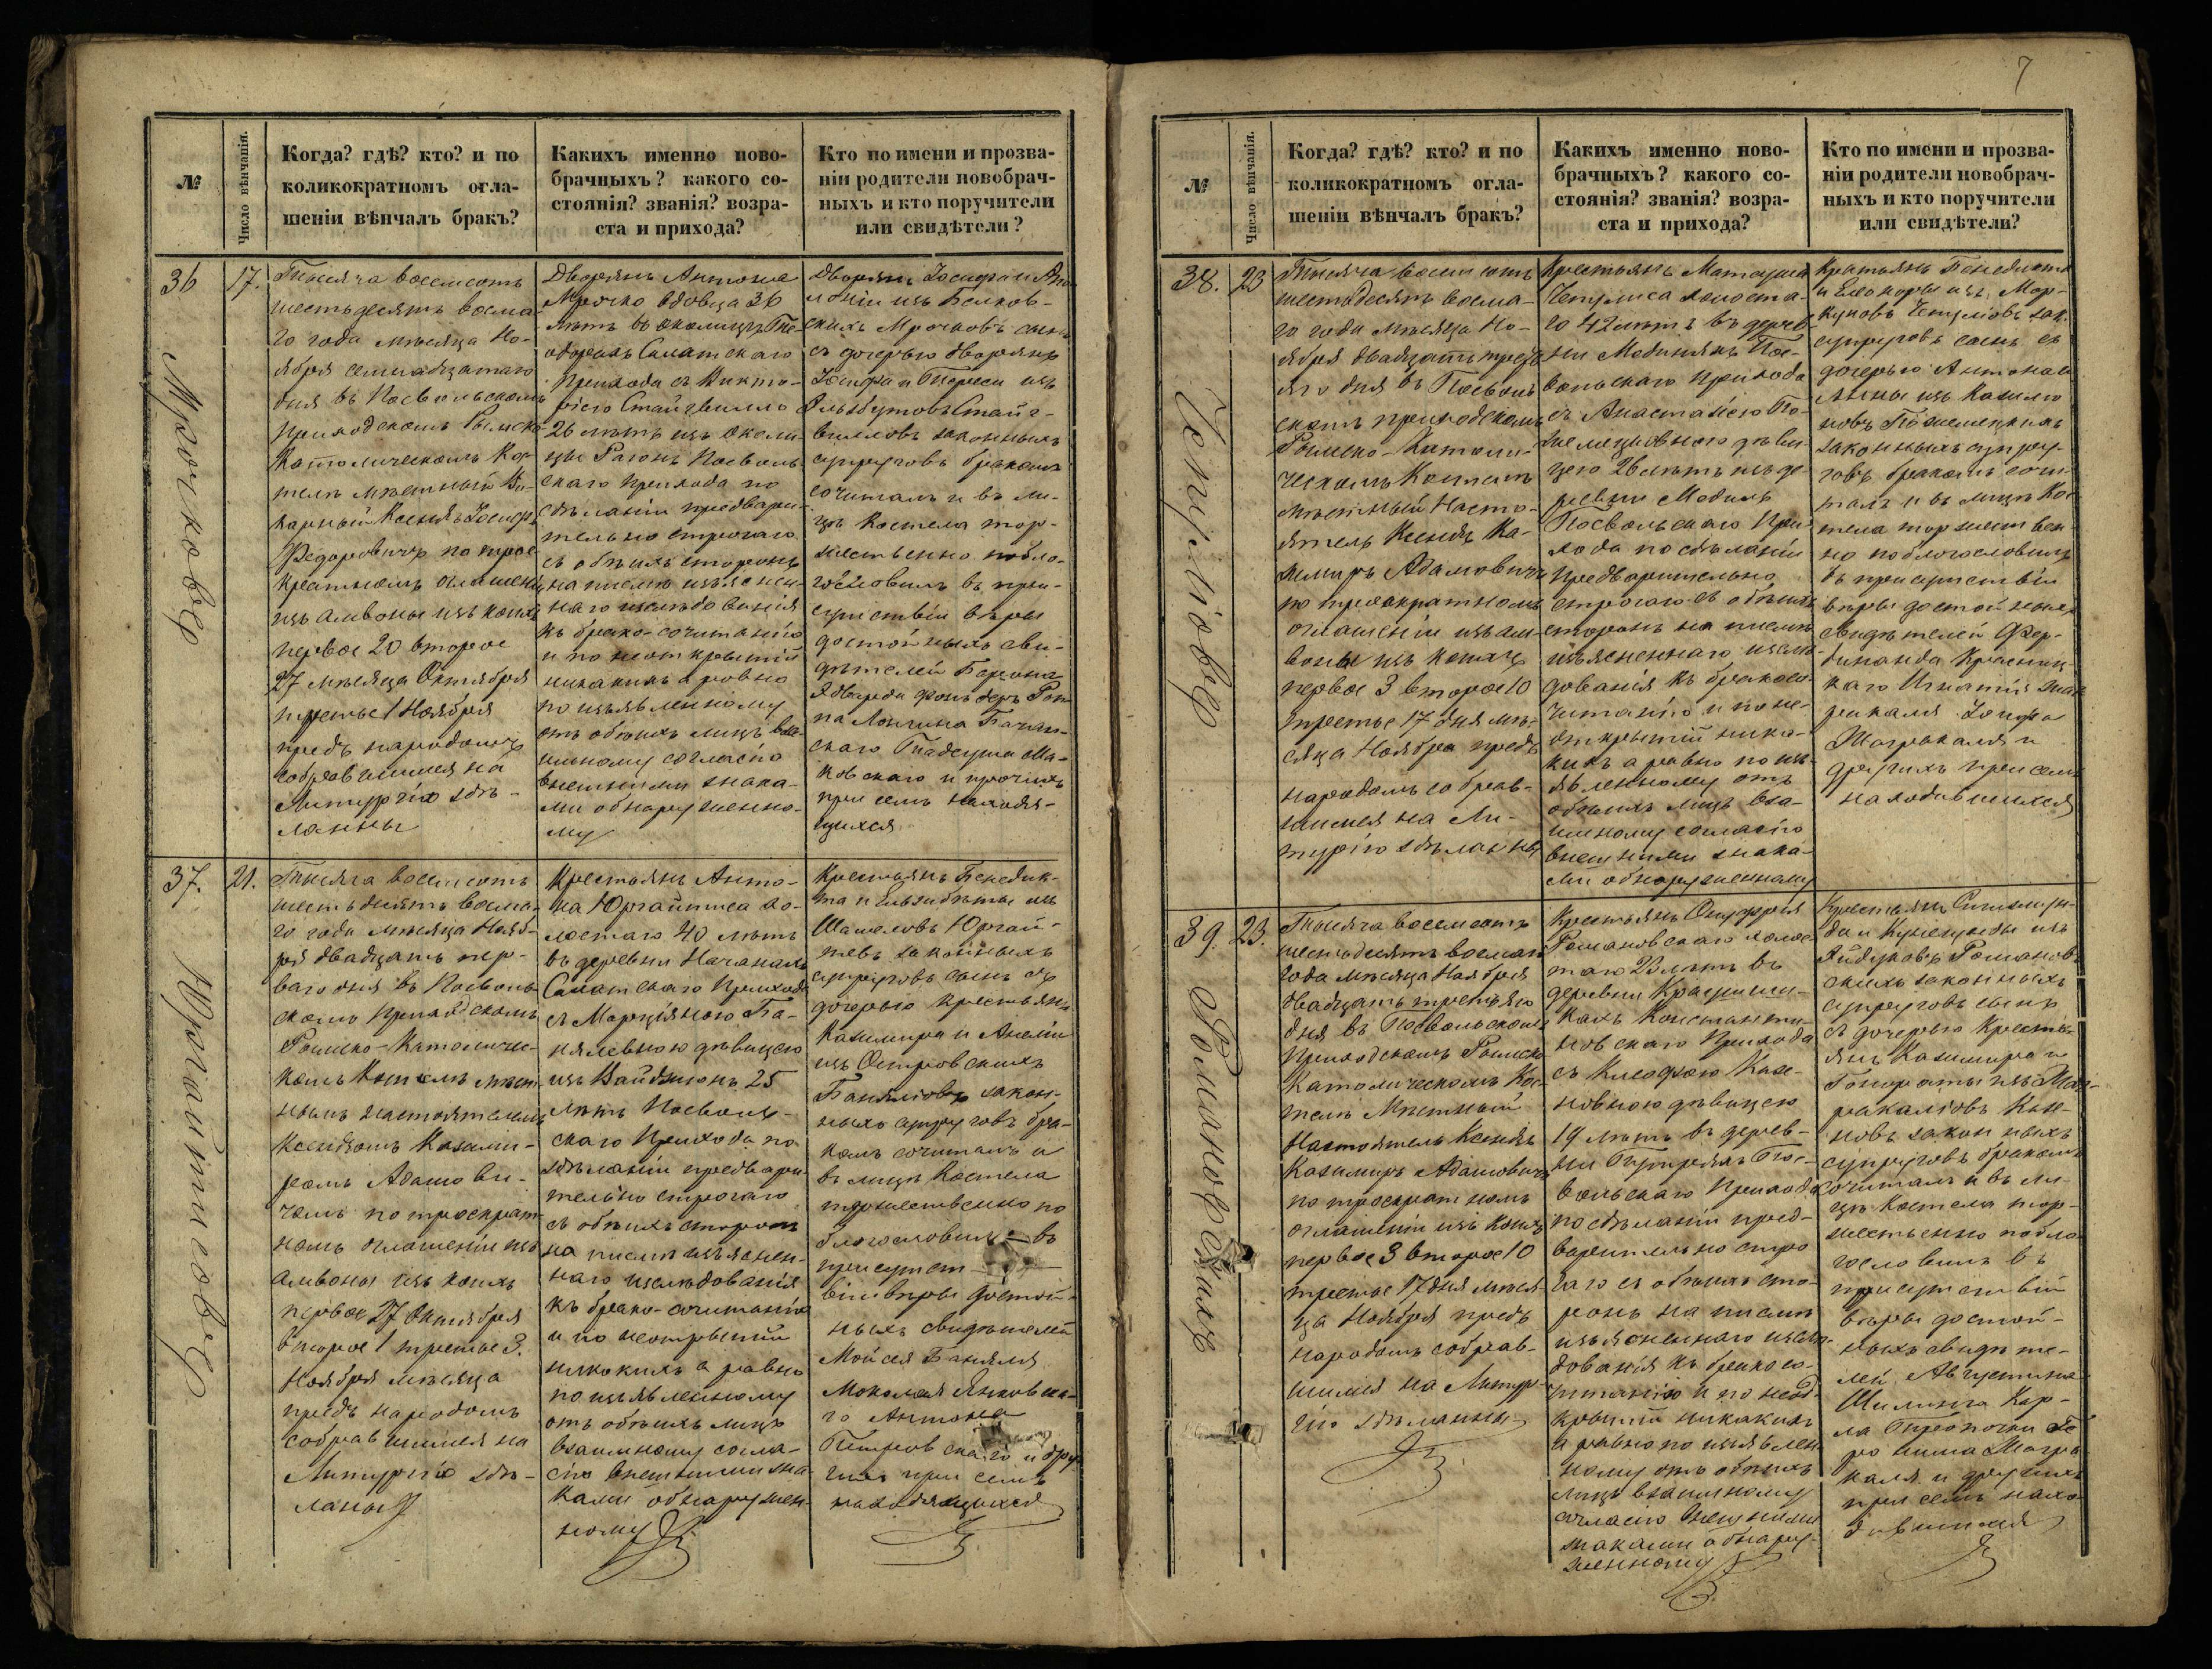 7
№
Число вѣнчанія.
Когда? гдѣ? кто? и по
коликократномъ огла-
шеніи вѣнчалъ бракъ?
Какихъ именно ново-
брачныхъ? какого со-
стоянія? званія? возра-
ста и прихода?
Кто по имени и прозва-
ніи родители новобрач-
ныхъ и кто поручители
или свидѣтели?
36
17.
Тысяча восемсотъ
шестьдесятъ восма
го года мѣсяца Но-
ября семнадцатаго
дня въ Посвольскомъ
Приходскомъ Римско
Католическомъ Кос
телѣ мѣстный Ви-
карный Ксендзъ Іосифъ
Федоровичъ по трое
кратномъ оглашеніи
изъ амвоны изъ коихъ
первое 20 второе
27 мѣсяца Октября
третье 1 Ноября
предъ народомъ
собравшимся на
Литургію здѣ-
ланны
Дворянъ Антона
Мрочко вдовца 36
лѣтъ въ околицѣ
Салатскаго
Прихода съ Викто-
ріею Стайгвилло
26 лѣтъ изъ околи-
цы Рагонъ Посволь
скаго прихода по
сдѣланіи предвари-
тельно строгаго
съ обѣихъ сторонъ
на писмѣ изъяснен-
наго изслѣдованія
къ брако-сочитанію
и по неоткрытіи
никакихъ а равно
по изъявленному
отъ обѣихъ лицъ вза-
имному согласію
внешними знака-
ми обнаруженно-
му
Дворянъ Іосифа и
изъ Белков-
скихъ Мрочковъ сына
съ дочерью дворянъ
Іосифа и Тересы изъ
Стайг-
вилловъ законныхъ
супруговъ бракомъ
сочиталъ и въ ли-
цѣ Костела тор-
жественно побло-
гословилъ въ при-
сутствіи вѣры
достойныхъ сви-
дѣтелей Барона
Эдварда фонъ деръ Роп
па Лонгина
скаго Тадеуша Ма-
ковскаго и прочихъ
при семъ находя-
щихся
37.
21.
Тысяча восемсотъ
шестьдесятъ восма
го года мѣсяца Нояб-
ря двадцать пер-
ваго дня въ Посволь
скомъ Приходскомъ
Римско-Католичес-
комъ Костелѣ мѣст
нымъ настоятелемъ
Ксендзомъ Казими-
ромъ Адамови-
чемъ по троекрат-
номъ оглашеніи изъ
амвоны изъ коихъ
первое 27 Октября
второе 1 третье 3.
Ноября мѣсяца
предъ народомъ
собравшимся на
Литургію здѣ-
ланы
Крестьянъ Анто-
на Юргайтиса хо-
лостаго 40 лѣтъ
въ деревни
Салатскаго Прихода
съ Марціяною Ба-
нялевною дѣвицею
изъ 25
лѣтъ Посволь-
скаго Прихода по
здѣланіи предвари-
тельно строгаго
съ обѣихъ сторонъ
на писмѣ изъяснен-
наго изслѣдованія
къ брако-сочитанію
и по неоткрытіи
никакихъ а равно
по изъявленному
отъ обѣихъ лицъ
взаимному согла-
сію внешними зна-
ками обнаружен-
ному
Крестьянъ Бенедик-
та и Ельзибѣты изъ
Юргай-
тевъ законныхъ
супруговъ сына съ
дочерью крестьянъ
Казимира и Анели
изъ Островскихъ
Банялювъ закон-
ныхъ супруговъ бра-
комъ сочиталъ и
въ лицѣ Костела
торжественно по
благословилъ въ
присутст
віи вѣры достой-
ныхъ свидѣтелей
Мойсея Баняля
Янковска-
го Антона
Петровскаго и дру
гихъ при семъ
находящихся
Мрочковъ
Юргайтисовъ
38.
23
Тысяча восемсотъ
шестьдесятъ восма-
го года мѣсяца Но-
ября двадцать треть
яго дня въ Посволь
скомъ приходскомъ
Римско-Католи-
ческомъ Костелѣ
мѣстный Насто-
ятель Ксендзъ Ка-
зимиръ Адамовичъ
по троекратномъ
оглашеніи изъ ам-
воны изъ коихъ
первое 3 второе 10
третье 17 дня мѣ-
сяца Ноября предъ
народомъ собрав-
шимся на Ли-
тургію здѣланны
Крестьянъ Матеуша
Чепулиса холоста-
го 42 лѣтъ въ дерев
ни Пос-
вольскаго прихода
съ Анастазіею По-
жемецковною дѣви
цею 26 лѣтъ изъ де
ревни
Посвольскаго При-
хода по сдѣланіи
предварительно
строгаго съ обѣихъ
сторонъ на писмѣ
изъясненнаго изслѣ
дованія къ бракосо
читанію и по не-
открытіи ника-
кихъ а равно по изъ
явленному отъ
обѣихъ лицъ вза-
имному согласію
внешними знака-
ми обнаруженному
Крестьянъ Бенедикта
и Елеоноры изъ Мар-
Чепулювъ зак.
супруговъ сына съ
дочерью Антона и
Анны изъ
новъ Пожемецкихъ
законныхъ супру-
говъ бракомъ сочи-
талъ и въ лицѣ Кос
тела торжествен-
но поблогословилъ
въ присутствіи
вѣры достойныхъ
свидѣтелей Фер-
динанда Красниц-
каго Игнатія Маг
рикаля Іосифа
Магрикаля и
другихъ при семъ
находившихся
39.
23.
Тысяча восемсотъ
шестьдесятъ восмаго
года мѣсяца Ноября
двадцать третьяго
дня въ Посвольскомъ
Приходскомъ Римско
Католическомъ Кос-
телѣ Мѣстный
Настоятель Ксендзъ
Казимиръ Адамовичъ
по троекратномъ
оглашеніи изъ коихъ
первое 3 второе 10
третье 17 дня мѣся
ца Ноября предъ
народомъ собрав-
шимся на Литур
гію здѣланны
Крестьянъ Онуфрія
Романовскаго холос
таго 23 лѣтъ въ
деревни
Константи-
новскаго Прихода
съ Клеофою Кон-
новною дѣвицею
19 лѣтъ въ дерев-
ни Пос-
вольскаго Прихода
по сдѣланіи пред-
варительно стро
гаго съ обѣихъ сто-
ронъ на писмѣ
изъясненнаго изслѣ-
дованія къ бракосо-
читанію и по неот-
крытіи никакихъ
а равно по изъявлен
ному отъ обѣихъ
лицъ взаимному
согласію внешними
знаками обнару-
женному
Крестьянъ Сигизмун-
да и Кунегунды изъ
Романов-
скихъ законныхъ
супруговъ сына
съ дочерью Кресть-
янъ Казимира и
Гонораты изъ Маг-
рикалювъ Кон-
новъ законныхъ
супруговъ бракомъ
сочиталъ и въ ли-
цѣ Костела тор-
жественно побло
гословилъ въ
присутствіи
вѣры достой-
ныхъ свидѣте-
лей Августина
Шилинга Кар-
ла
Магри
каля и другихъ
при семъ нахо
дившихся
Чепулювъ
Романовскихъ